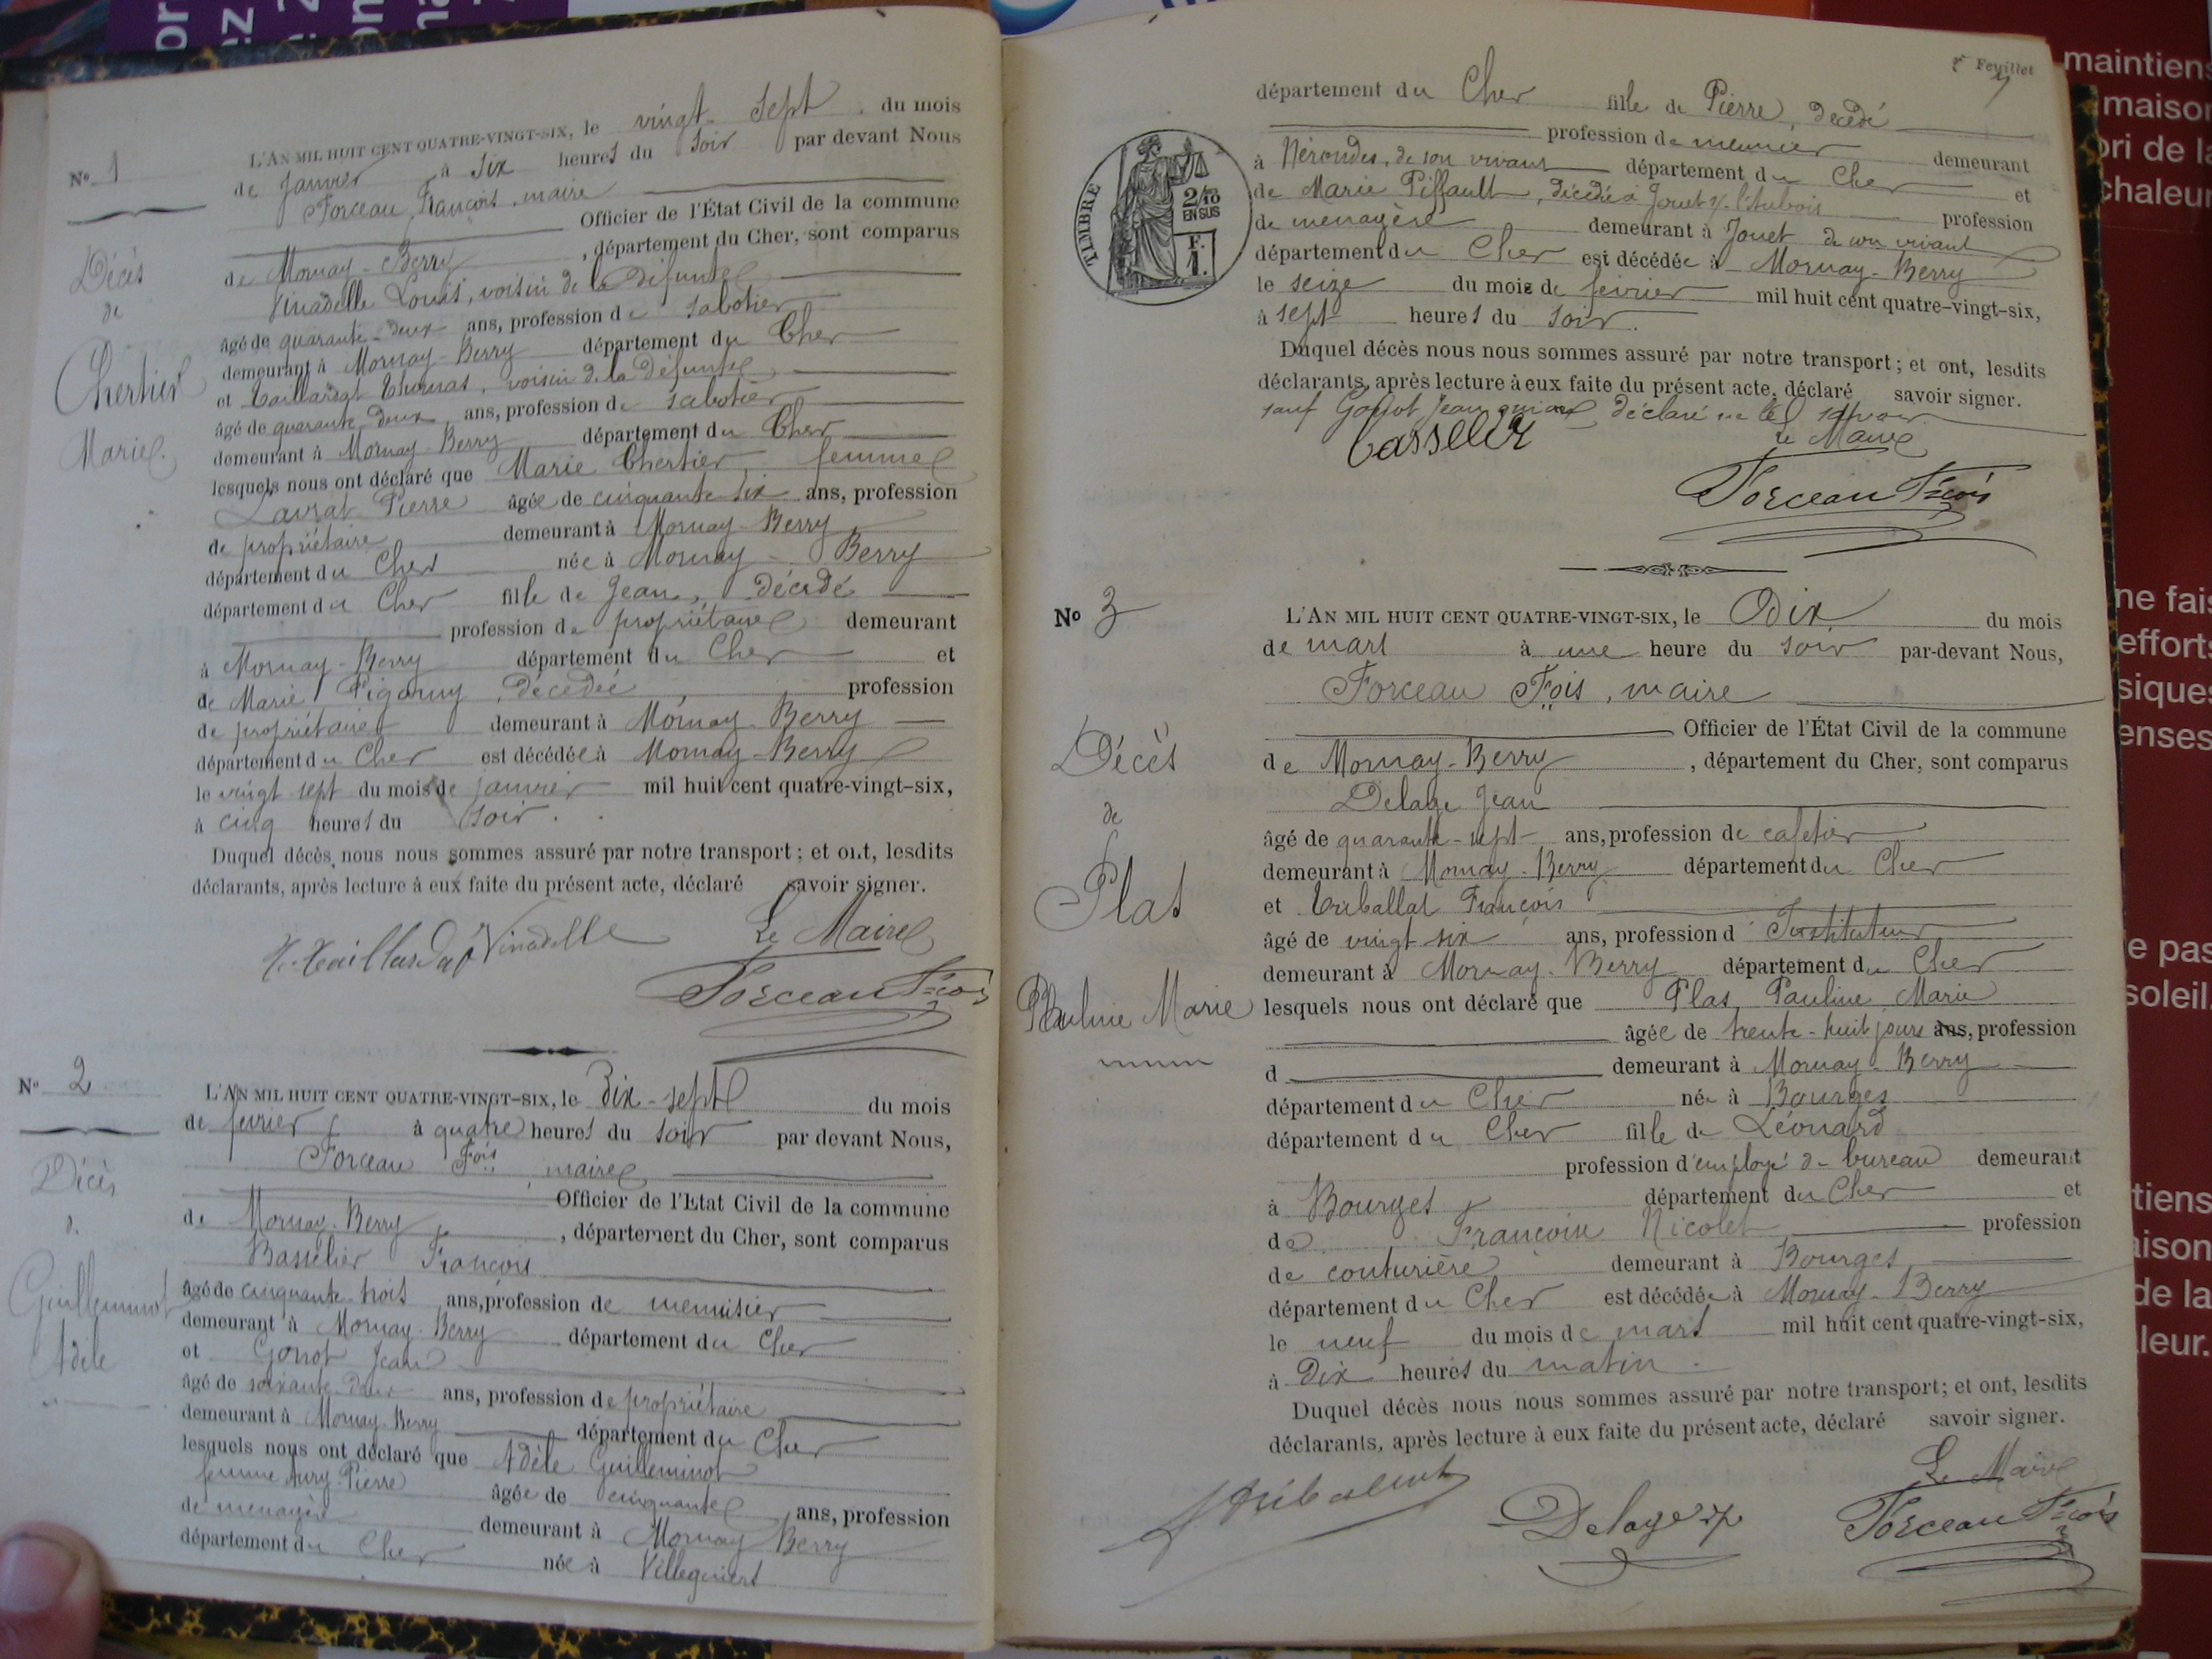 N° 1
L'AN MIL HUIT CENT QUATRE-VINGT-SIX, le vingt-sept du mois
de Janvier à six heures du soir par devant Nous
Forceau, François, maire
Officier de l'État Civil de la commune
de Mornay-Berry, département du Cher, sont comparus
Vinadelle Louis, voisin de la défunte
âgé de quarante-deux ans, profession de sabotier
demeurant à Mornay-Berry département du Cher
et Taillardat Thomas, voisin de la défunte
âgé de quarante-deux ans, profession de sabotier
demeurant à Mornay-Berry département du Cher
lesquels nous ont déclaré que Marie Chertier, femme
Lavrat Pierre âgée de cinquante-six ans, profession
de propriétaire demeurant à Mornay-Berry
département du Cher née à Mornay-Berry
département du Cher fille de Jean, décédé
profession de propriétaire demeurant
à Mornay-Berry département du Cher et
de Marie décédée, profession
de propriétaire demeurant à Mornay-Berry
département du Cher est décédée à Mornay-Berry
le vingt-sept du mois de janvier mil huit cent quatre-vingt-six,
à cinq heures du soir.
Duquel décès nous nous sommes assuré par notre transport; et ont, lesdits
déclarants, après lecture à eux faite du présent acte, déclaré savoir signer.
Le Maire
Taillardat Vinadelle
Forceau Fçois
Décès
de
Chertier
Marie.
N° 2
L'AN MIL HUIT CENT QUATRE-VINGT-SIX, le Dix-sept du mois
de fevrier à quatre heures du soir par devant Nous,
Forceau Fois, maire
Officier de l'Etat Civil de la commune
de Mornay-Berry, département du Cher, sont comparus
Basselier François
âgé de cinquante-trois ans, profession de menuisier
demeurant à Mornay-Berry département du Cher
et Jean
âgé de soixante-deux ans, profession de propriétaire
demeurant à Mornay-Berry département du Cher
lesquels nous ont déclaré que Adèle Guilleminot
femme Aury Pierre âgée de cinquante ans, profession
de menagère demeurant à Mornay Berry
département du Cher née à Villequiers
Décès
de
Guilleminot
Adèle
Feuillet
département du Cher fille de Pierre, décédé
profession de meunier demeurant
à Nérondes, de son vivant département du Cher et
de Marie Piffault, décédée à Jouet s/ l'Aubois profession
de menagère demeurant à Jouet de son vivant
département du Cher est décédée à Mornay-Berry
le seize du mois de fevrier mil huit cent quatre-vingt-six,
à sept heures du soir.
Duquel décès nous nous sommes assuré par notre transport; et ont, lesdits
déclarants, après lecture à eux faite du présent acte, déclaré savoir signer.
sauf Jean qui a déclaré ne le savoir
Le Maire
Forceau Fçois
TIMBRE
2/10
EN SUS
F.
1.
N° 3
L'AN MIL HUIT CENT QUATRE-VINGT-SIX, le Dix du mois
de mars à une heure du soir par-devant Nous,
Forceau Fois, maire
Officier de l'État Civil de la commune
de Mornay-Berry, département du Cher, sont comparus
Delage Jean
âgé de quarante-sept ans, profession de cafetier
demeurant à Mornay-Berry département du Cher
et Triballat François
âgé de vingt-six ans, profession d'Instituteur
demeurant à Mornay-Berry département du Cher
lesquels nous ont déclaré que Plas, Pauline, Marie
âgée de trente-huit jours ans, profession
d demeurant à Mornay-Berry
département du Cher née à Bourges
département du Cher fille de Léonard
profession d'employé de bureau demeurant
à Bourges département du Cher et
de Nicolet profession
de couturière demeurant à Bourges
département du Cher est décédée à Mornay-Berry
le neuf du mois de mars mil huit cent quatre-vingt-six,
à Dix heures du matin.
Duquel décès nous nous sommes assuré par notre transport; et ont, lesdits
déclarants, après lecture à eux faite du présent acte, déclaré savoir signer.
Le Maire
Delage
Forceau Fçois
Décès
de
Plas
Pauline Marie
maintiens
maison
chaleur
efforts